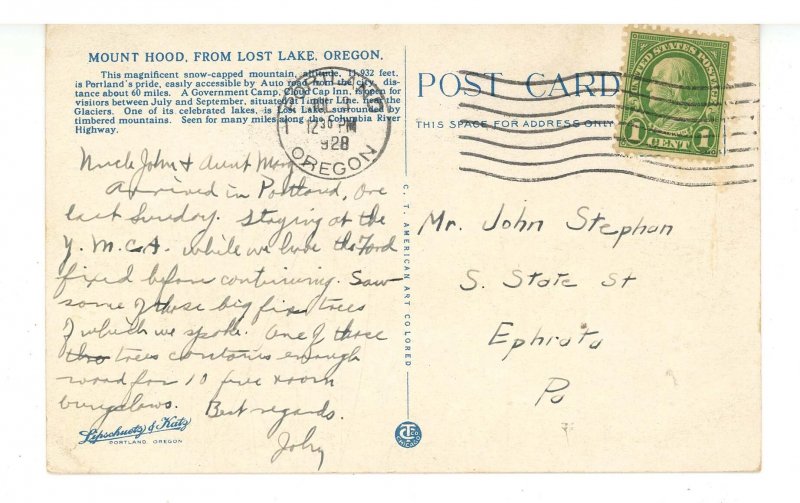 MOUNT HOOD, FROM LOST LAKE, OREGON.
This magnificent snow-capped mountain, altitude, 11,932 feet,
is Portland's pride, easily accessible by Auto road from the city, dis-
tance about 60 miles. A Government Camp, Cloud Cap Inn, is open for
visitors between July and September, situated at Timber Line, near the
Glaciers. One of its celebrated lakes, is Lost Lake surrounded by
timbered mountains. Seen for many miles along the Columbia River
Highway.
PORTLAND
12 30 PM
1928
OREGON
POST CARD
THIS SPACE FOR ADDRESS ONLY
UNITED STATES POSTAGE
1 CENT 1
Uncle John & Aunt Mary
Arrived in Portland, Ore
last Sunday. Staying at the
Y.M.C.A. while we have the Ford
fixed before continuing. Saw
some of those big fir trees
of which we spoke. One of those
tho trees contains enough
wood for 10 five room
bungalows. Best regards.
John
Mr. John Stephan
S. State St
Ephrata
Pa
C. T. AMERICAN ART COLORED
Lipschuetz & Katz
PORTLAND, OREGON
CHICAGO